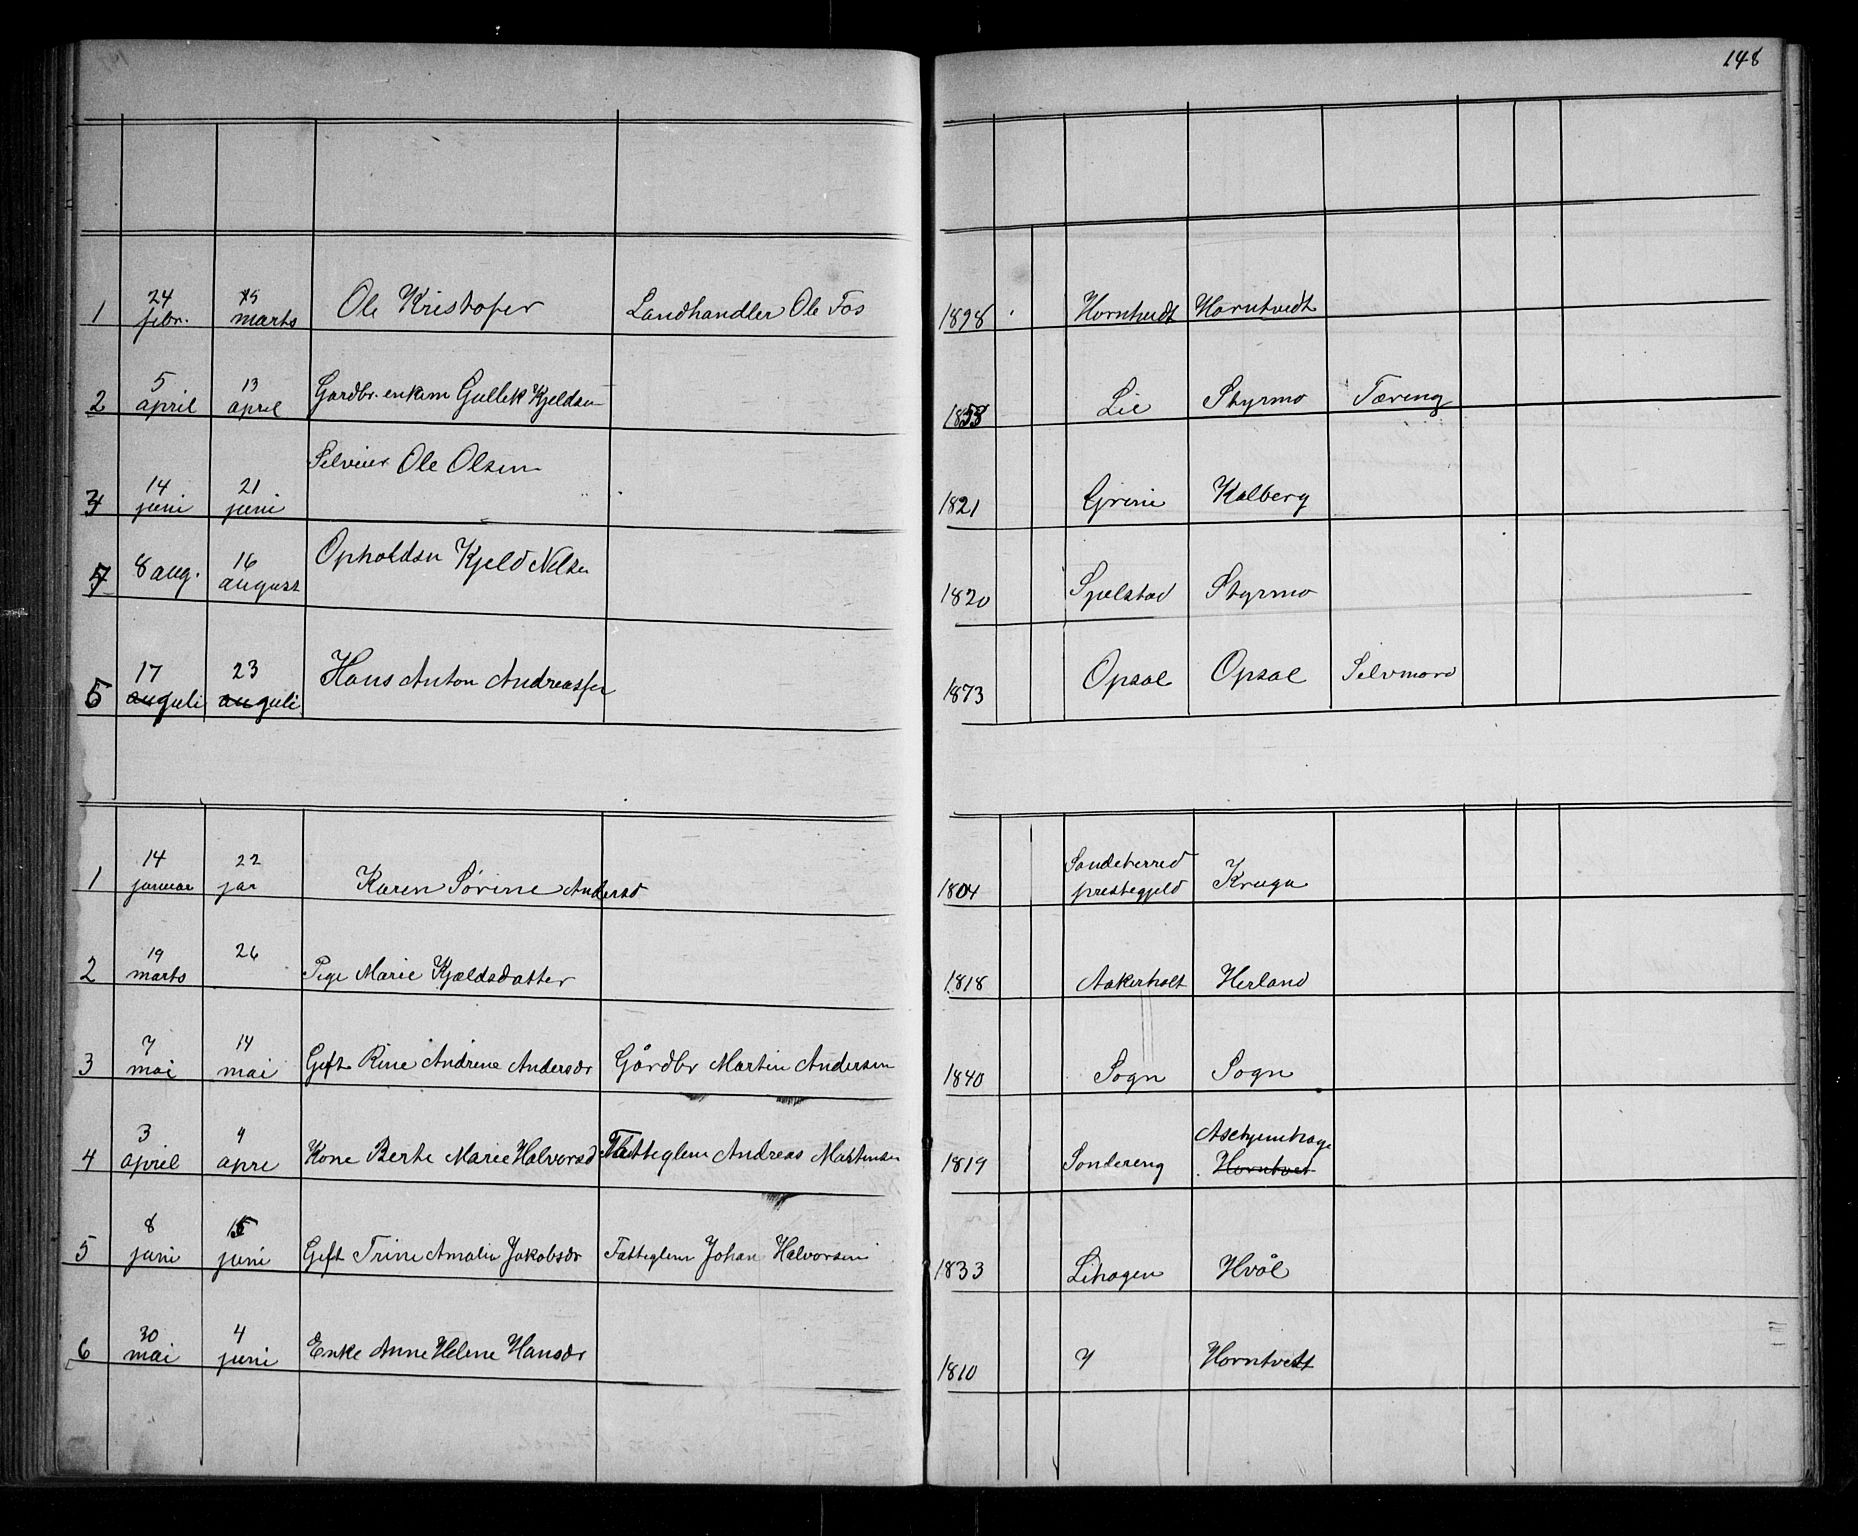 148
1 24 febr. 15 marts Ole Kristofer Landhandler Ole Fos 1898 Horntvedt Horntvedt
2 5 april 13 april Gardbr. enkem Gullek Kjeldsen 1853 Lie Styrmo Tæring
3 14 juni 21 juni Selveier Ole Olsen 1821 Grini Kalberg
4 8 aug. 16 august Opholdsm Kjeld Nilsen 1820 Spelstad Styrmo
5 17 juli 23 juli Hans Anton Andreassen 1873 Opsal Opsal Selvmord
1 14 januar 22 jar Karen Sørine Andersd 1804 Sandeherred
prestegjeld Kruge
2 19 marts 26 Pige Marie Kjældsdatter 1818 Aakerholt Herland
3 7 mai 14 mai Gift Rine Andrine Andersdr Gårdbr Martin Andersen 1840 Sogn Sogn
4 3 april 9 apre Kone Berte Marie Halvorsd Fatteglem Andreas Martinsen 1819 Sondereng Aschjemhage
Horntvet
5 8 juni 15 juni Gift Trine Amalie Jakobsdr Fatteglem Johan Halvorsen 1833 Lihagen Hvål
6 30 mai 4 juni Enke Anne Helene Hansdr 1810 Horntvett